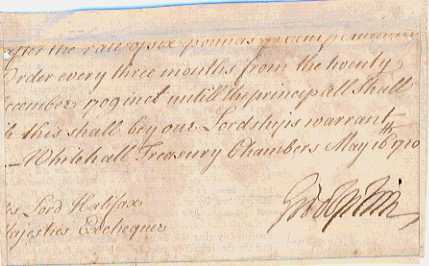 after the rate of six pounds p cent p annum
Order every three months from the twenty
ecember 1709 inct untill the principall shall
this shall bey our Lordships warrant
Whitehall Treasury Chambers May 16th 1710
Lord Halifax
Majesties Exchequer
Godolphin